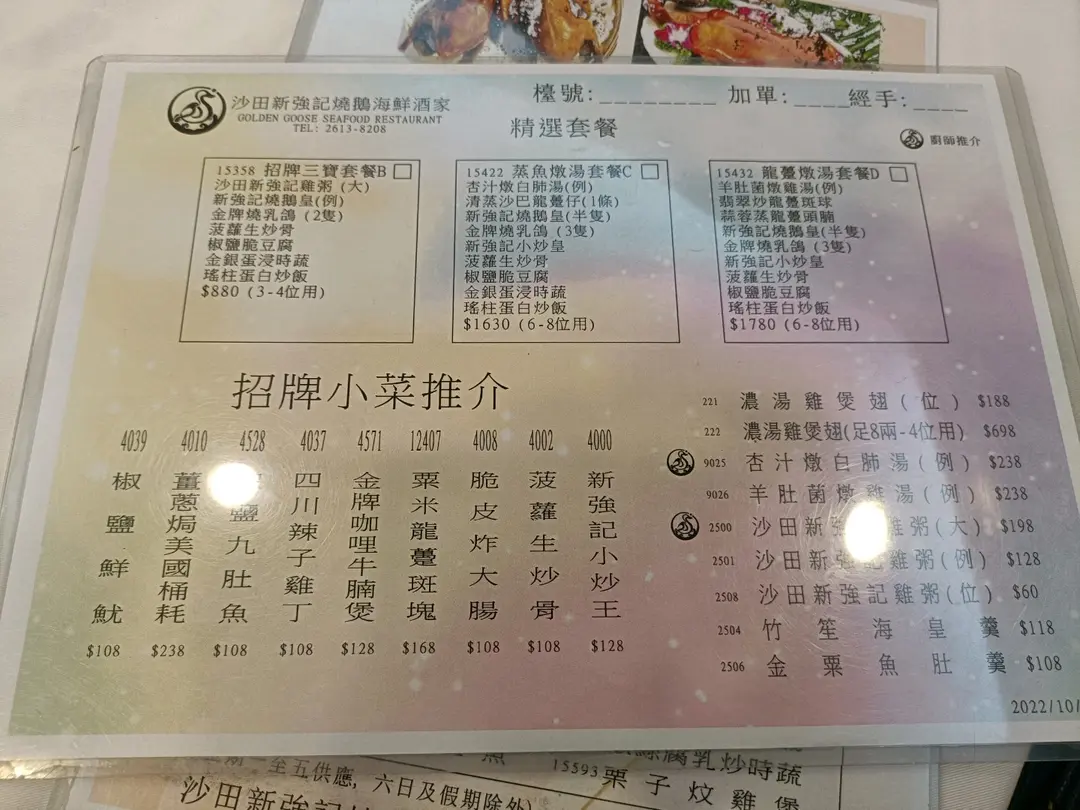 沙田新強記燒鵝海鮮酒家
GOLDEN GOOSE SEAFOOD RESTAURANT
TEL: 2613-8208
檯號:_________ 加單:____ 經手:____
精選套餐
廚師推介
15358 招牌三寶套餐B
沙田新強記雞粥 (大)
新強記燒鵝皇(例)
金牌燒乳鴿 (2隻)
菠蘿生炒骨
椒鹽脆豆腐
金銀蛋浸時蔬
瑤柱蛋白炒飯
$880 (3-4位用)
15422 蒸魚燉湯套餐C
杏汁燉白肺湯(例)
清蒸沙巴龍躉仔(1條)
新強記燒鵝皇(半隻)
金牌燒乳鴿 (3隻)
新強記小炒皇
菠蘿生炒骨
椒鹽脆豆腐
金銀蛋浸時蔬
瑤柱蛋白炒飯
$1630 (6-8位用)
15432 龍躉燉湯套餐D
羊肚菌燉雞湯(例)
翡翠炒龍躉斑球
蒜蓉蒸龍躉頭腩
新強記燒鵝皇(半隻)
金牌燒乳鴿 (3隻)
新強記小炒皇
菠蘿生炒骨
椒鹽脆豆腐
瑤柱蛋白炒飯
$1780 (6-8位用)
招牌小菜推介
4039 椒鹽鮮魷 $108
4010 薑蔥焗美國桶蚝 $238
4528 鹽九肚魚 $108
4037 四川辣子雞丁 $108
4571 金牌咖哩牛腩煲 $128
12407 粟米龍躉斑塊 $168
4008 脆皮炸大腸 $108
4002 菠蘿生炒骨 $108
4000 新強記小炒王 $128
221 濃湯雞煲翅(位) $188
222 濃湯雞煲翅(足8兩-4位用) $698
9025 杏汁燉白肺湯(例) $238
9026 羊肚菌燉雞湯(例) $238
2500 沙田新強雞粥(大) $198
2501 沙田新強記雞粥(例) $128
2508 沙田新強記雞粥(位) $60
2504 竹笙海皇羹 $118
2506 金粟魚肚羹 $108
2022/10/
腐乳炒時蔬
至五供應, 六日及假期除外)
15593 栗子炆雞煲
沙田新強記